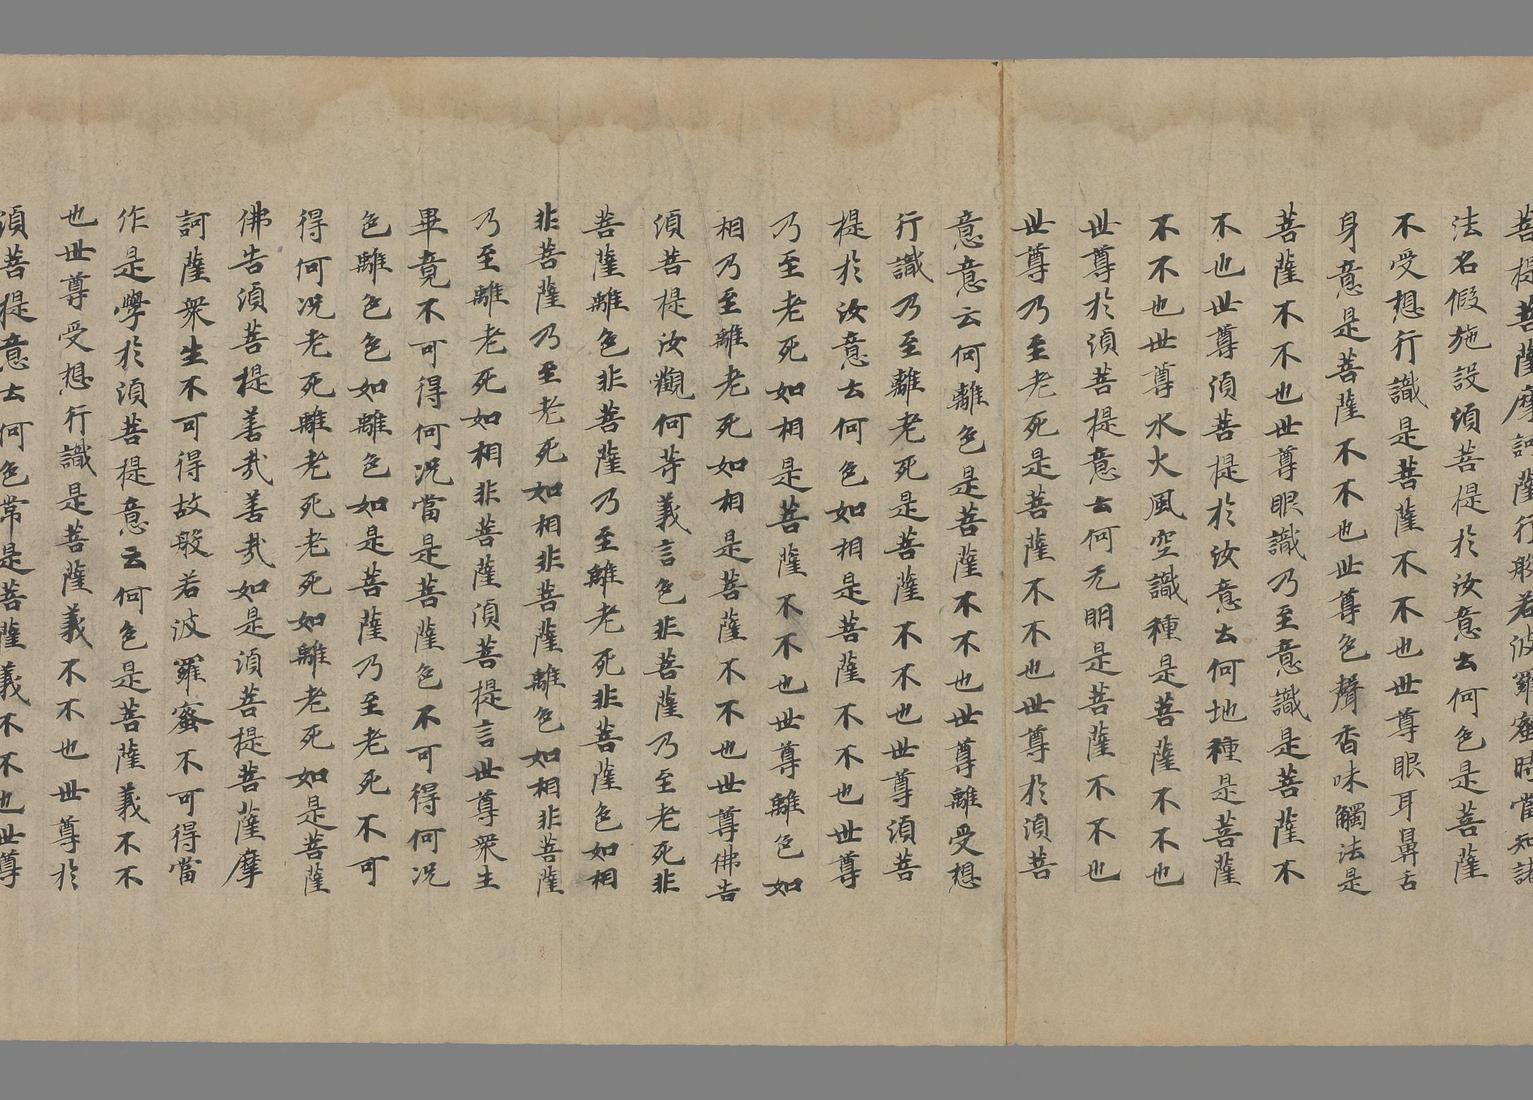 菩提菩薩摩訶薩行般若波羅蜜時當知諸
法名假施設須菩提於汝意云何色是菩薩
不受想行識是菩薩不不也世尊眼耳鼻舌
身意是菩薩不不也世尊色聲香味觸法是
菩薩不不也世尊眼識乃至意識是菩薩不
不也世尊須菩提於汝意云何地種是菩薩
不不也世尊水火風空識種是菩薩不不也
世尊於須菩提意云何无明是菩薩不不也
世尊乃至老死是菩薩不不也世尊於須菩
意意云何離色是菩薩不不也世尊離受想
行識乃至離老死是菩薩不不也世尊須菩
提於汝意云何色如相是菩薩不不也世尊
乃至老死如相是菩薩不不也世尊離色如
相乃至離老死如相是菩薩不不也世尊佛告
須菩提汝觀何等義言色非菩薩乃至老死非
菩薩離色非菩薩乃至離老死非菩薩色如相
非菩薩乃至老死如相非菩薩離色如相非菩薩
乃至離老死如相非菩薩須菩提言世尊衆生
畢竟不可得何況當是菩薩色不可得何況
色離色色如離色如是菩薩乃至老死不可
得何況老死離老死老死如離老死如是菩薩
佛告須菩提善哉善哉如是須菩提菩薩摩
訶薩衆生不可得故般若波羅蜜不可得當
作是學於須菩提意云何色是菩薩義不不
也世尊受想行識是菩薩義不不也世尊於
須菩提意云何色常是菩薩義不不也世尊